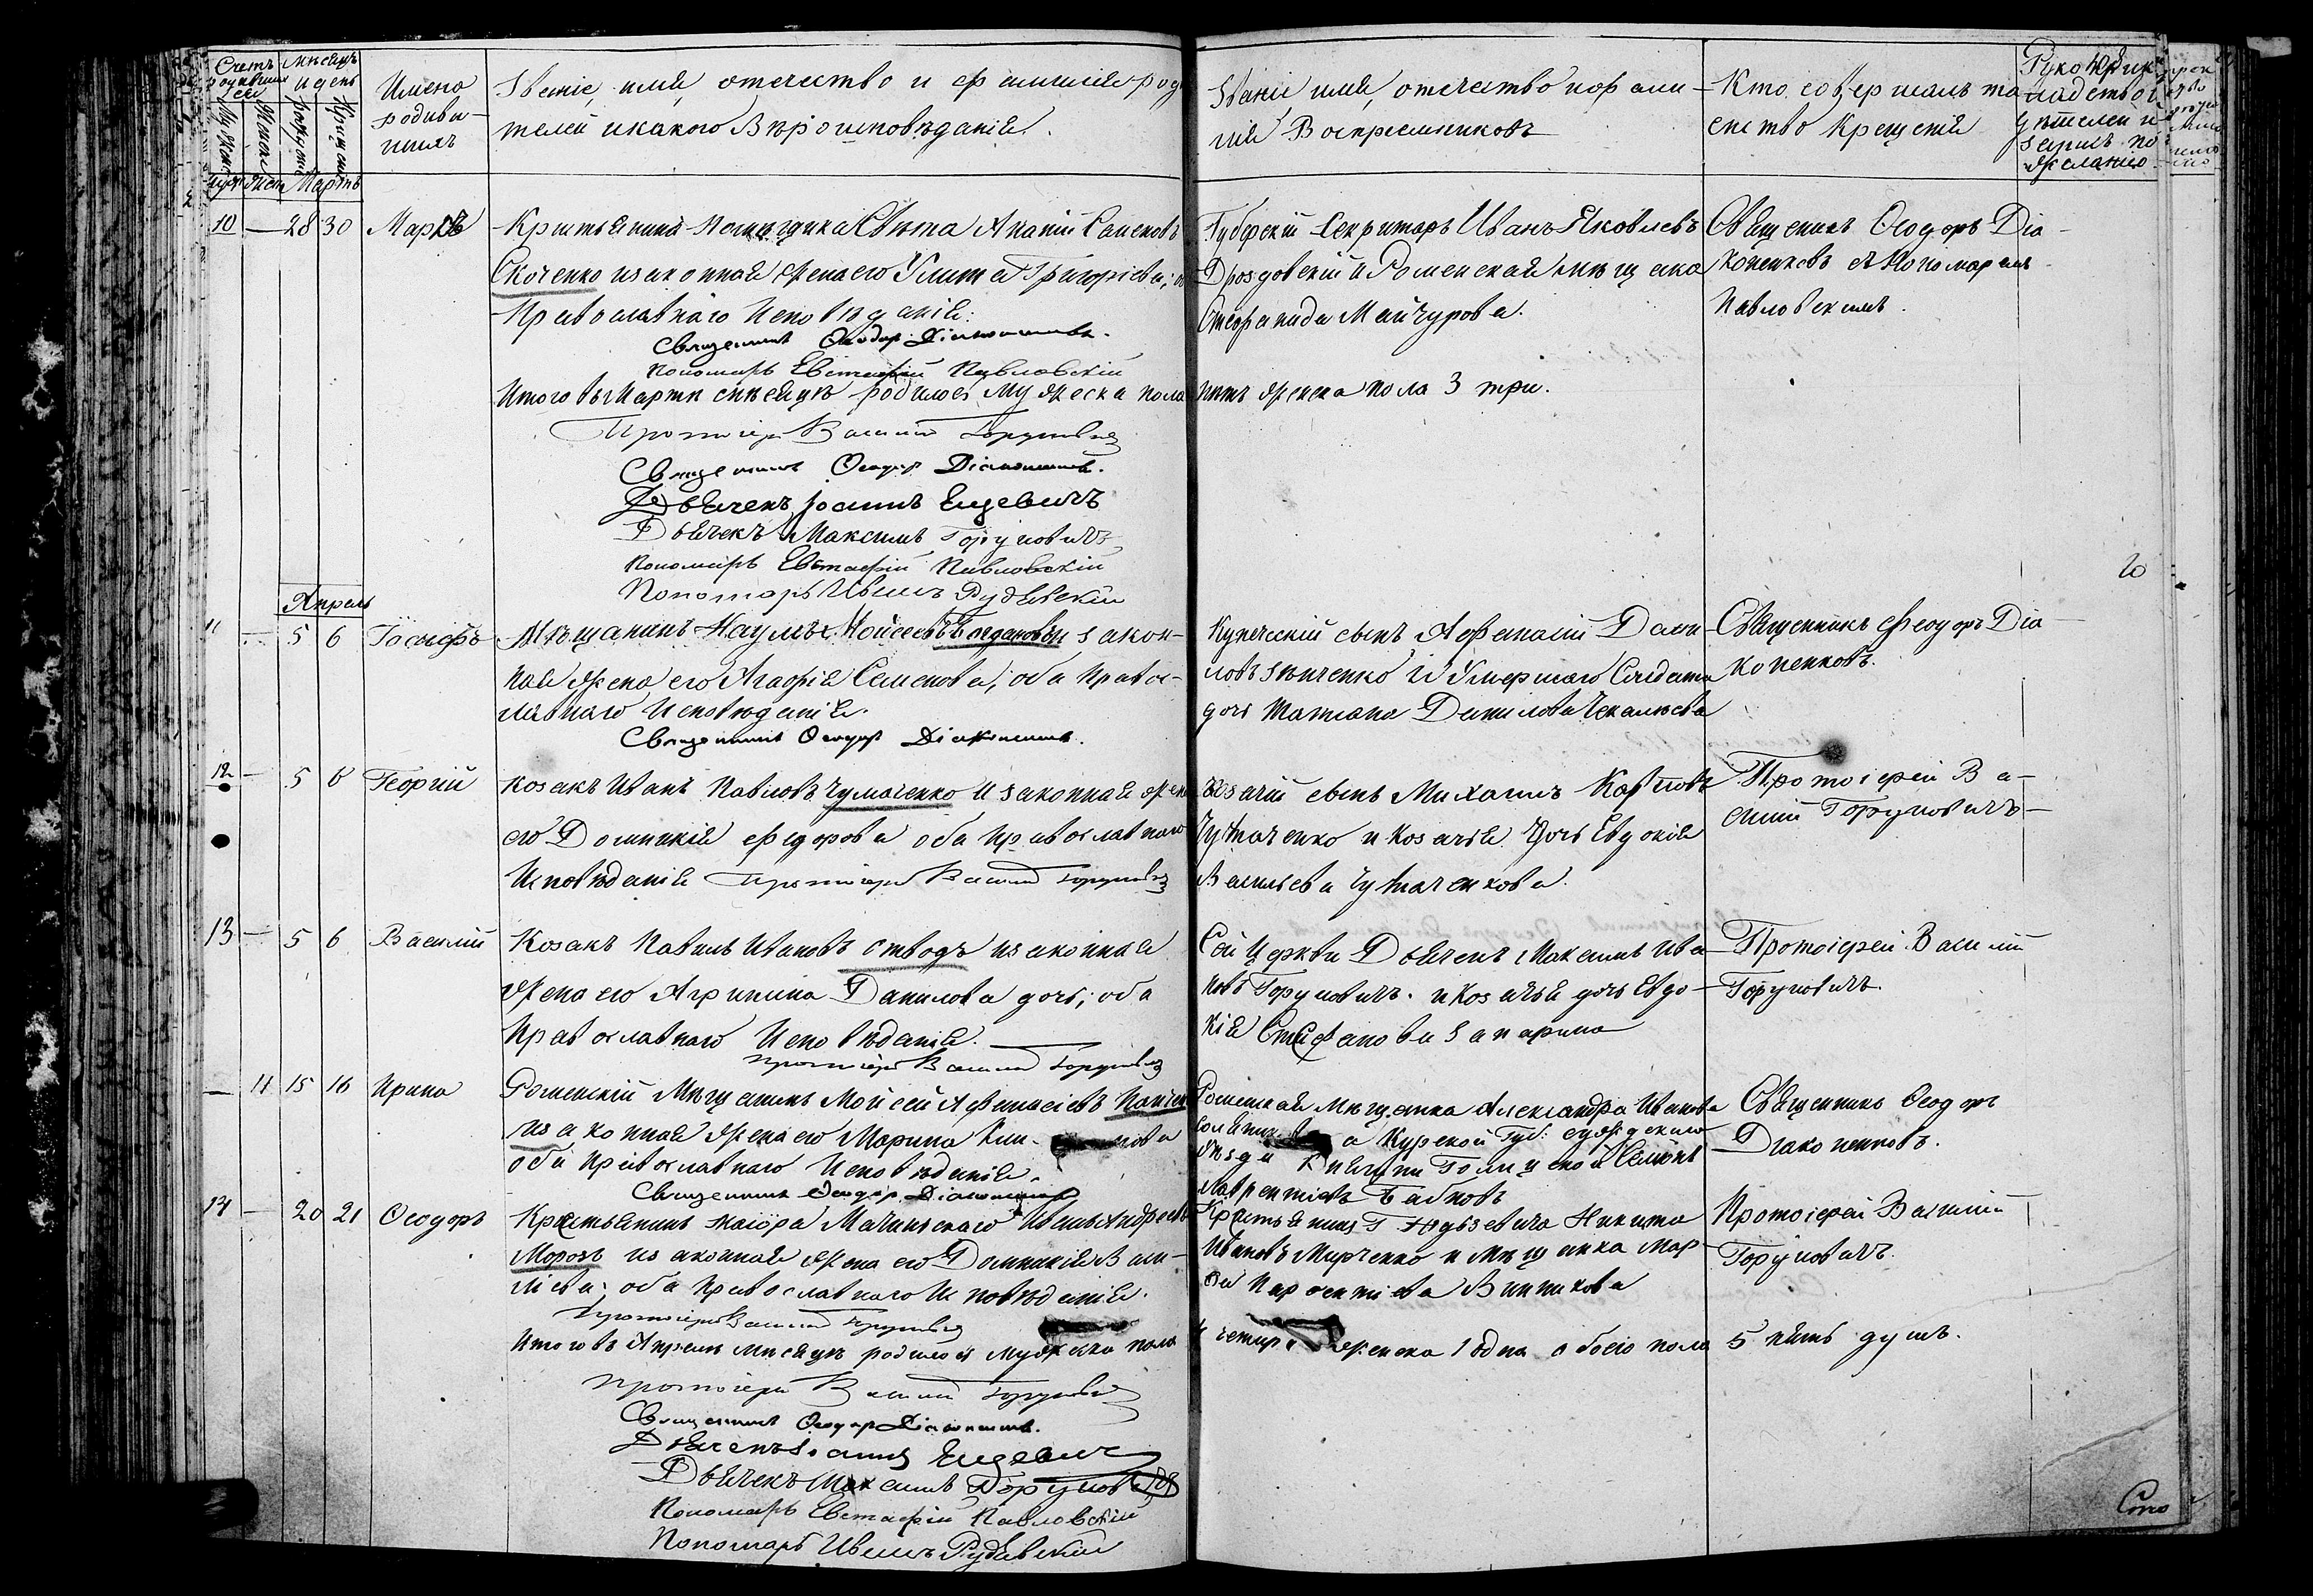 Счетъ родившихся
Мѣсяцъ и день
Имена родившихъ
Званіе, имя, отечество и фамилія родителей и какого Вѣроисповѣданія.
Званіе имя, отечество и фамилія Воспріемниковъ
Кто совершалъ таинство Крещенія
Рукоприкладство свидѣтелей записи по желанію
Мартъ
10 — 28 30 Маркъ
Крестьянинъ помѣщика Свѣта
Скоченко и законная жена его Улита Григоріева; оба
Православнаго Исповѣданія.
Священникъ Ѳеодоръ Діаконенковъ.
Пономарь Евстафій Павловскій
Губерскій Секритарь Иванъ Яковлевъ
Дроздовскій и Роменская мѣщанка
Стефанида Майчурова.
Священникъ Ѳеодоръ Діа-
коненковъ с Пономаремъ
Павловскимъ.
Итого въ Мартѣ мѣсяцѣ родилось мужеска пола
пять женска пола 3 три.
Протоіерей Василій Горуновичъ
Священникъ Ѳеодоръ Діаконенковъ.
Дьячекъ Іоаннъ Енцевичъ
Дьячекъ Максимъ Горуновичъ
Пономарь Евстафій Павловскій
Пономарь Иванъ Рудѣвскій
20
Апрель
11 — 5 6 Іосифъ
Мѣщанинъ Наумъ Мойсеевъ Богдановъ и закон-
ная жена его Агафія Семенова; оба Правос-
лавнаго Исповѣданія.
Священникъ Ѳеодоръ Діаконенковъ.
Купеческій сынъ Афанасій Дани-
ловъ и Умершаго Солдата
дочь Татіана Данилова
Священникъ Феодоръ Діа-
коненковъ.
12 — 5 6 Георгій
Козакъ Иванъ Павловъ Чумаченко и законная жена
его Домникія Федорова оба православнаго
Исповѣданія Протоіерей Василій Горуновичъ
Козачій сынъ Михаилъ Карповъ
Чумаченко и Козачья дочь Евдокія
Васильева Чумаченкова.
Протоіерей Ва-
силій Горуновичъ
13 — 5 6 Василій
Козакъ Павелъ Ивановъ Отводъ и законная
жена его Агрипина Данилова дочь; оба
Православнаго Исповѣданія.
Протоіерей Василій Горуновичъ
Сей Церкви Дьячекъ Максимъ Ива-
новъ Горуновичъ и Козачья дочь Евдо-
кія Стефанова Запарина
Протоіерей Василій
Горуновичъ.
— 11 15 16 Ирина
Роменскій Мѣщанинъ Мойсей Афанасіевъ
и законная жена его Марина
оба православнаго Исповѣданія.
Священникъ Ѳеодоръ Діаконенковъ
Роменская мѣщанка Александра Иванова
а Курской Губ: суджескаго
уѣзда Семенъ
Лаврентіевъ Бабковъ
Священникъ Ѳеодоръ
Діаконенковъ.
14 — 20 21 Ѳеодоръ
Крестьянинъ маіора Мачинскаго Иванъ Андреевъ
Морозъ и законная жена его Домникія Васи-
лієва; оба Православнаго Исповѣданія.
Протоіерей Василій Горуновичъ
Крестьянинъ Г. Никита
Ивановъ Мирченко и Мѣщанка Мар-
ѳа Парфентіева Винникова
Протоіерей Василій
Горуновичъ.
Итого въ Апрелѣ мѣсяцѣ родилось мужеска пола
4 четыре женска 1 одна обоего пола 5 пять душъ.
Протоіерей Василій Горуновичъ
Священникъ Ѳеодоръ Діаконенковъ.
Дьячекъ Іоаннъ Енцевичъ
Дьячекъ Максимъ Горуновичъ
Пономарь Евстафій Павловскій
Пономарь Иванъ Рудѣвскій
Сто